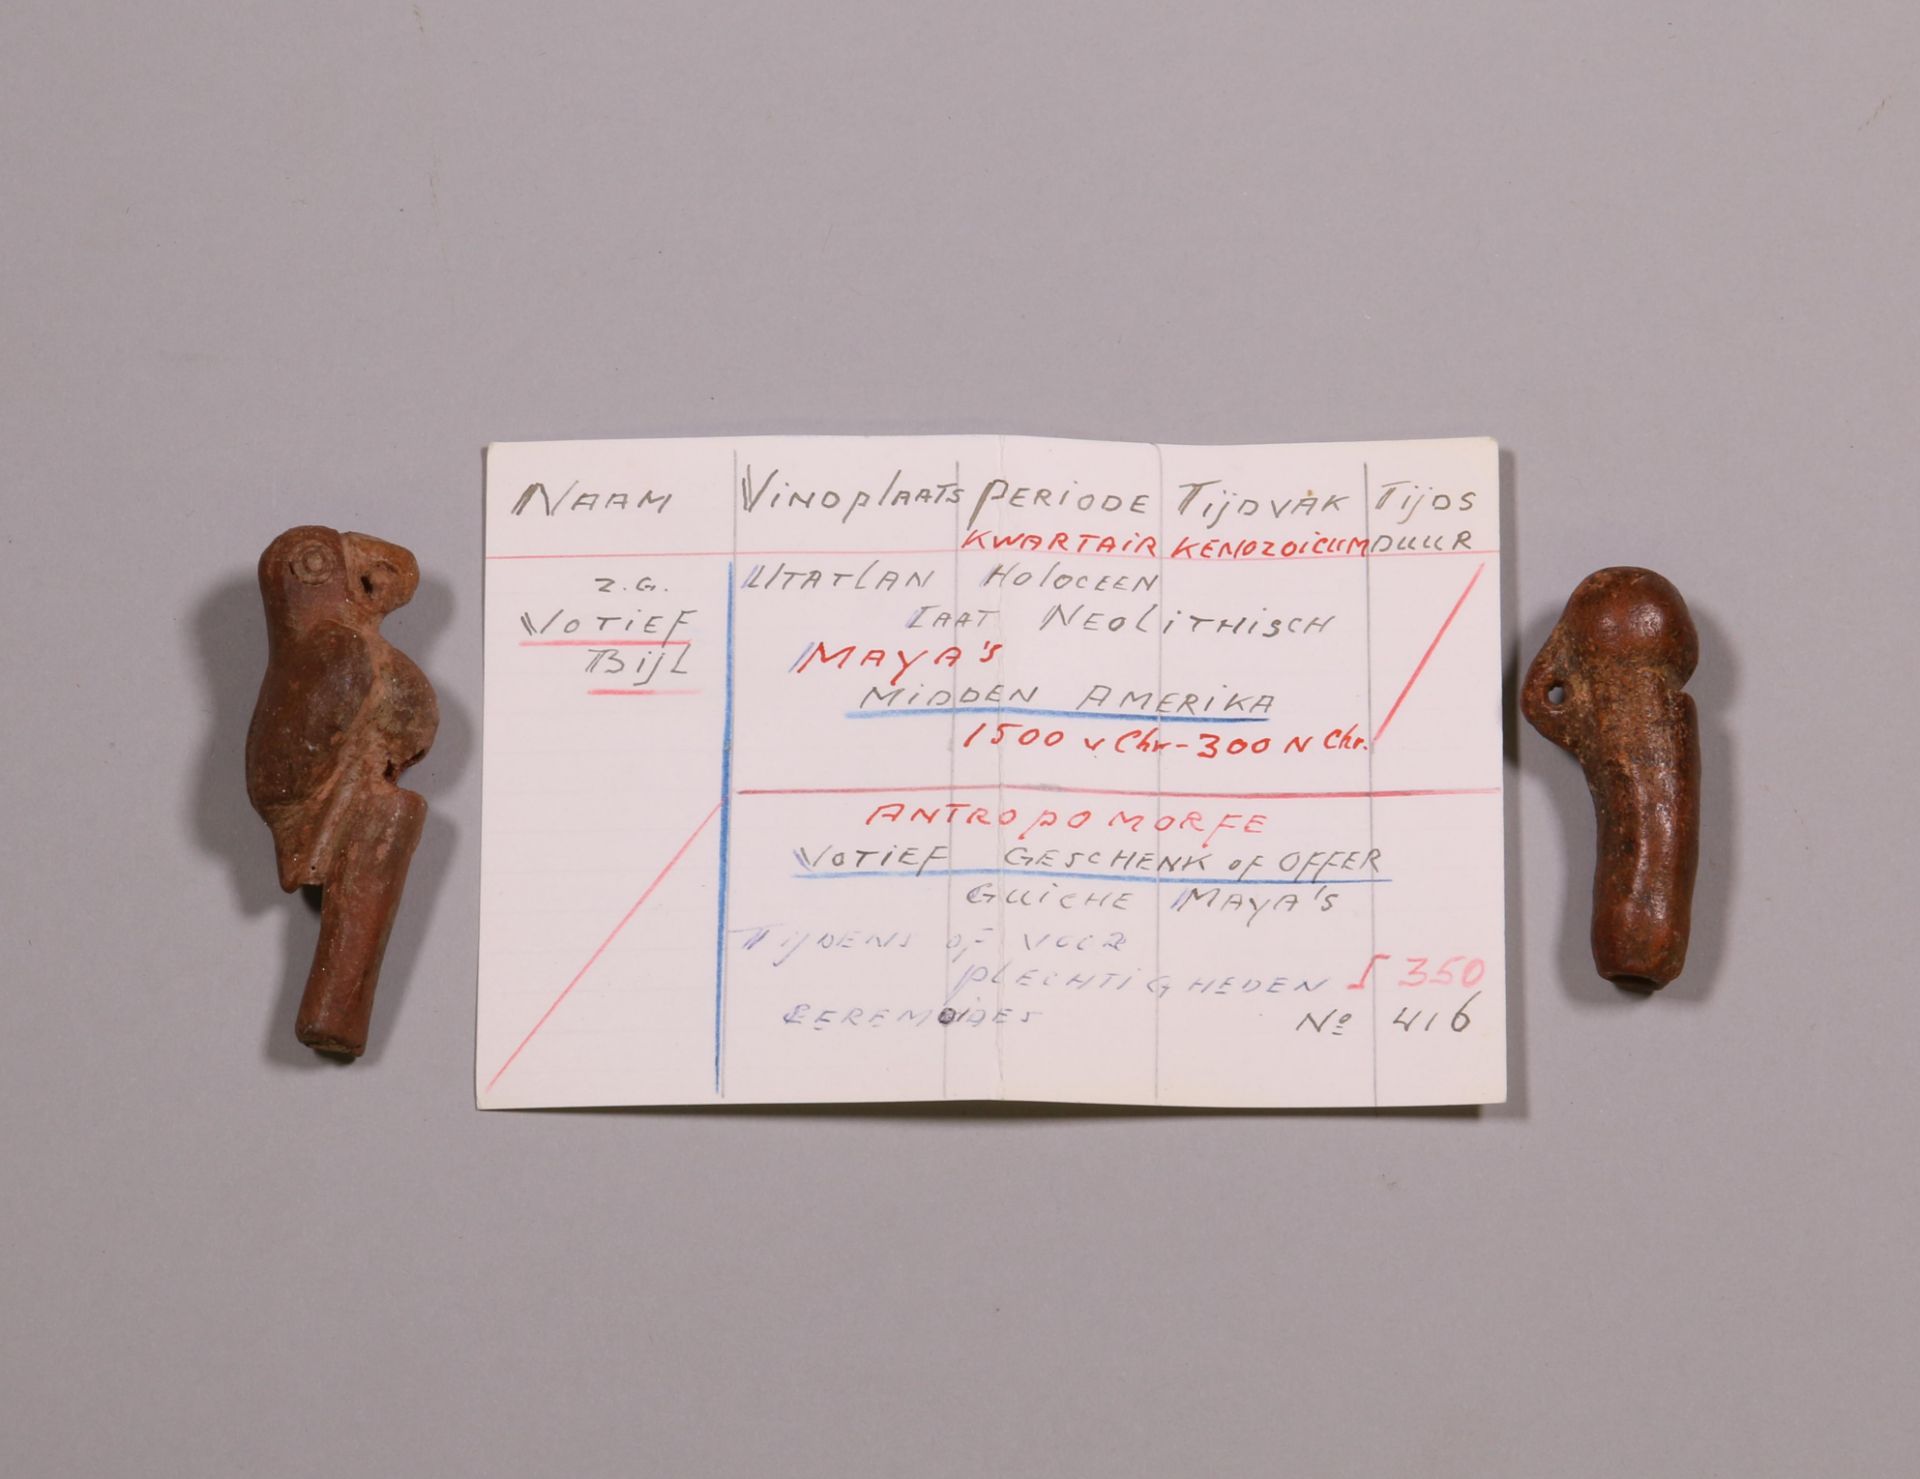 NAAM VINDPLAATS PERIODE TIJDVAK TIJDS
KWARTAIR KENOZOICUM DUUR
Z.G. UTATLAN HOLOCEEN
VOTIEF LAAT NEOLITHISCH
BIJL MAYA'S
MIDDEN AMERIKA
1500 v Chr - 300 N Chr.
ANTROPOMORFE
VOTIEF GESCHENK of OFFER
GUICHE MAYA'S
TIJDENS OF VOOR
PLECHTIGHEDEN 350
No 416